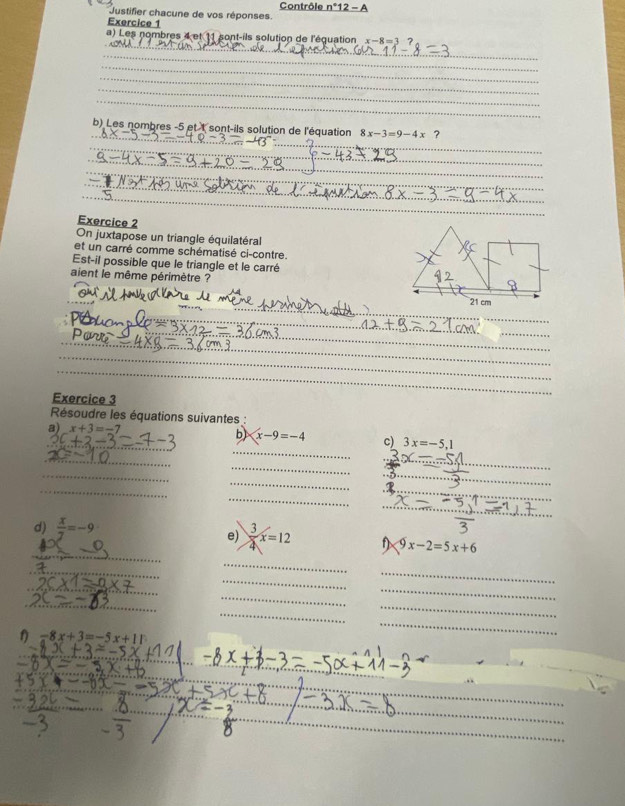 Contrôle n°12 – A
Justifier chacune de vos réponses.
Exercice 1
a) Les nombres 4 et 11 sont-ils solution de l'équation x−8=3 ?
oui 11 est un solution de l'équation car 11 - 8 = 3
b) Les nombres -5 et sont-ils solution de l'équation 8x−3=9−4x ?
8x-5-3 = -40-3 = -43
9-4x-5 = 9+20 = 29
-43 ≠ 29
N'est pas une solution de l'équation 8x - 3 = 9 - 4x
5
Exercice 2
On juxtapose un triangle équilatéral
et un carré comme schématisé ci-contre.
Est-il possible que le triangle et le carré
aient le même périmètre ?
12
9
21 cm
oui il le même
= 3×12 = 36cm
12 + 9 = 21cm
= 4×9 = 36cm
Exercice 3
Résoudre les équations suivantes :
a) x+3=−7
x+3-3=-7-3
x=-10
b) x−9=−4
c) 3x=−5,1
3x = -5,1
3 3
x = -5,1 = 1,7
3
d) x/7=−9
x -9
7
x×1=9×7
x=-63
e) 3/4 x=12
f) 9x−2=5x+6
f) −8x+3=−5x+11
-8x+3=-5x+11
-8x+3-3=-5x+11-3
-8x=-5x+8
+5x -8x = -5x+5x+8
-3x=8
-3x = 8
-3 -3
x = -3
8